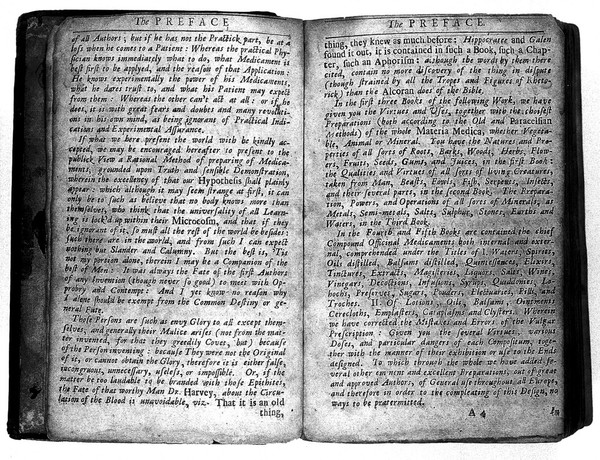 The PREFACE
of all Authors; but if he has not the Practick part, be at a
loss when he comes to a Patient: Whereas the practical Phy-
sician knows immediately what to do, what Medicament is
best first to be applyed, and the reason of that Application:
He knows experimentally the power of his Medicaments,
what he dares trust to, and what his Patient may expect
from them: Whereas the other can't act at all: or if he
does, it is with great fears and doubts and many revoluti-
ons in his own mind, as being ignorant of Practical Indi-
cations and Experimental Assurance.
If what we here present the world with be kindly ac-
cepted, we may be encouraged hereafter to present to the
publick View a Rational Method of preparing of Medica-
ments, grounded upon Truth and sensible Demonstration,
wherein the excellency of that our Hypothesis shall plainly
appear: which although it may seem strange at first, it can
only be to such as believe that no body knows more than
themselves, who think that the universality of all Learn-
ing is lock'd up within their Microcosm, and that if they
be ignorant of it, so must all the rest of the world be besides:
such there are in the world, and from such I can expect
nothing but Slander and Calumny. But the best is, 'Tis
not my portion alone, therein I may be a Companion of the
best of Men: It was always the Fate of the first Authors
of any Invention (though never so good) to meet with Op-
probry and Contempt: And I yet know no reason why
I alone should be exempt from the Common Destiny or ge-
neral Fate.
Those Persons are such as envy Glory to all except them-
selves, and generally their Malice arises (not from the mat-
ter invented, for that they greedily Covet, but) because
of the Person inventing: because They were not the Original
of it, or cannot obtain the Glory, therefore it is either false,
incongruous, unnecessary, useless, or impossible. Or, if the
matter be too laudable to be branded with those Epithites,
the Fate of that worthy Man Dr. Harvey, about the Circu-
lation of the Blood is unavoidable, viz. That it is an old
thing,
The PREFACE
thing, they knew as much before: Hippocrates and Galen
found it out, it is contained in such a Book, such a Chap-
ter, such an Aphorism: although the words by them there
cited, contain no more discovery of the thing in dispute
(though strained by all the Tropes and Figures of Rheto-
rick) than the Alcoran does of the Bible.
In the first three Books of the following Work, we have
given you the Virtues and Uses, together with the choisest
Preparations (both according to the Old and Paracelsian
Methods) of the whole Materia Medica, whether Vegeta-
ble, Animal or Mineral. You have the Natures and Pro-
perties of all sorts of Roots, Barks, Woods, Herbs, Flow-
ers, Fruits, Seeds, Gums, and Juices, in the first Book:
the Qualities and Virtues of all sorts of living Creatures
taken from Man, Beasts, Fowls, Fish, Serpents, Insects,
and their several parts, in the second Book. The Prepara-
tion, Powers, and Operations of all sorts of Minerals, as
Metals, Semi-metals, Salts, Sulphur, Stones, Earths and
Waters, in the Third Book.
In the Fourth and Fifth Books are contained the chief
Compound Officinal Medicaments both internal and exter-
nal, comprehended under the Titles of I. Waters, Spirits,
Oils distilled, Balsams distilled, Quintessences, Elixirs,
Tinctures, Extracts, Magisteries, Liquors, Sales, Wines,
Vinegars, Decoctions, Infusions, Syrups, Quiddonies, Lo-
hochs, Preserves, Sugars, Powders, Electuaries, Pills, and
Troches. II. Of Lotions, Oils, Balsams, Ointments
Cerecloths, Emplasters, Cataplasms and Clysters. Wherein
we have corrected the Mistakes and Errors of the Vulgar
Prescription: Given you the several Virtues, various
Doses, and particular dangers of each Compositum, toge-
ther with the manner of their exhibition or use to the Ends
designed. To which through the whole we have added se-
veral other eminent and excellent Preparations, out of great
and approved Authors, of General use throughout all Europe,
and therefore in order to the compleating of this Design, no
ways to be pretermitted.
A 4